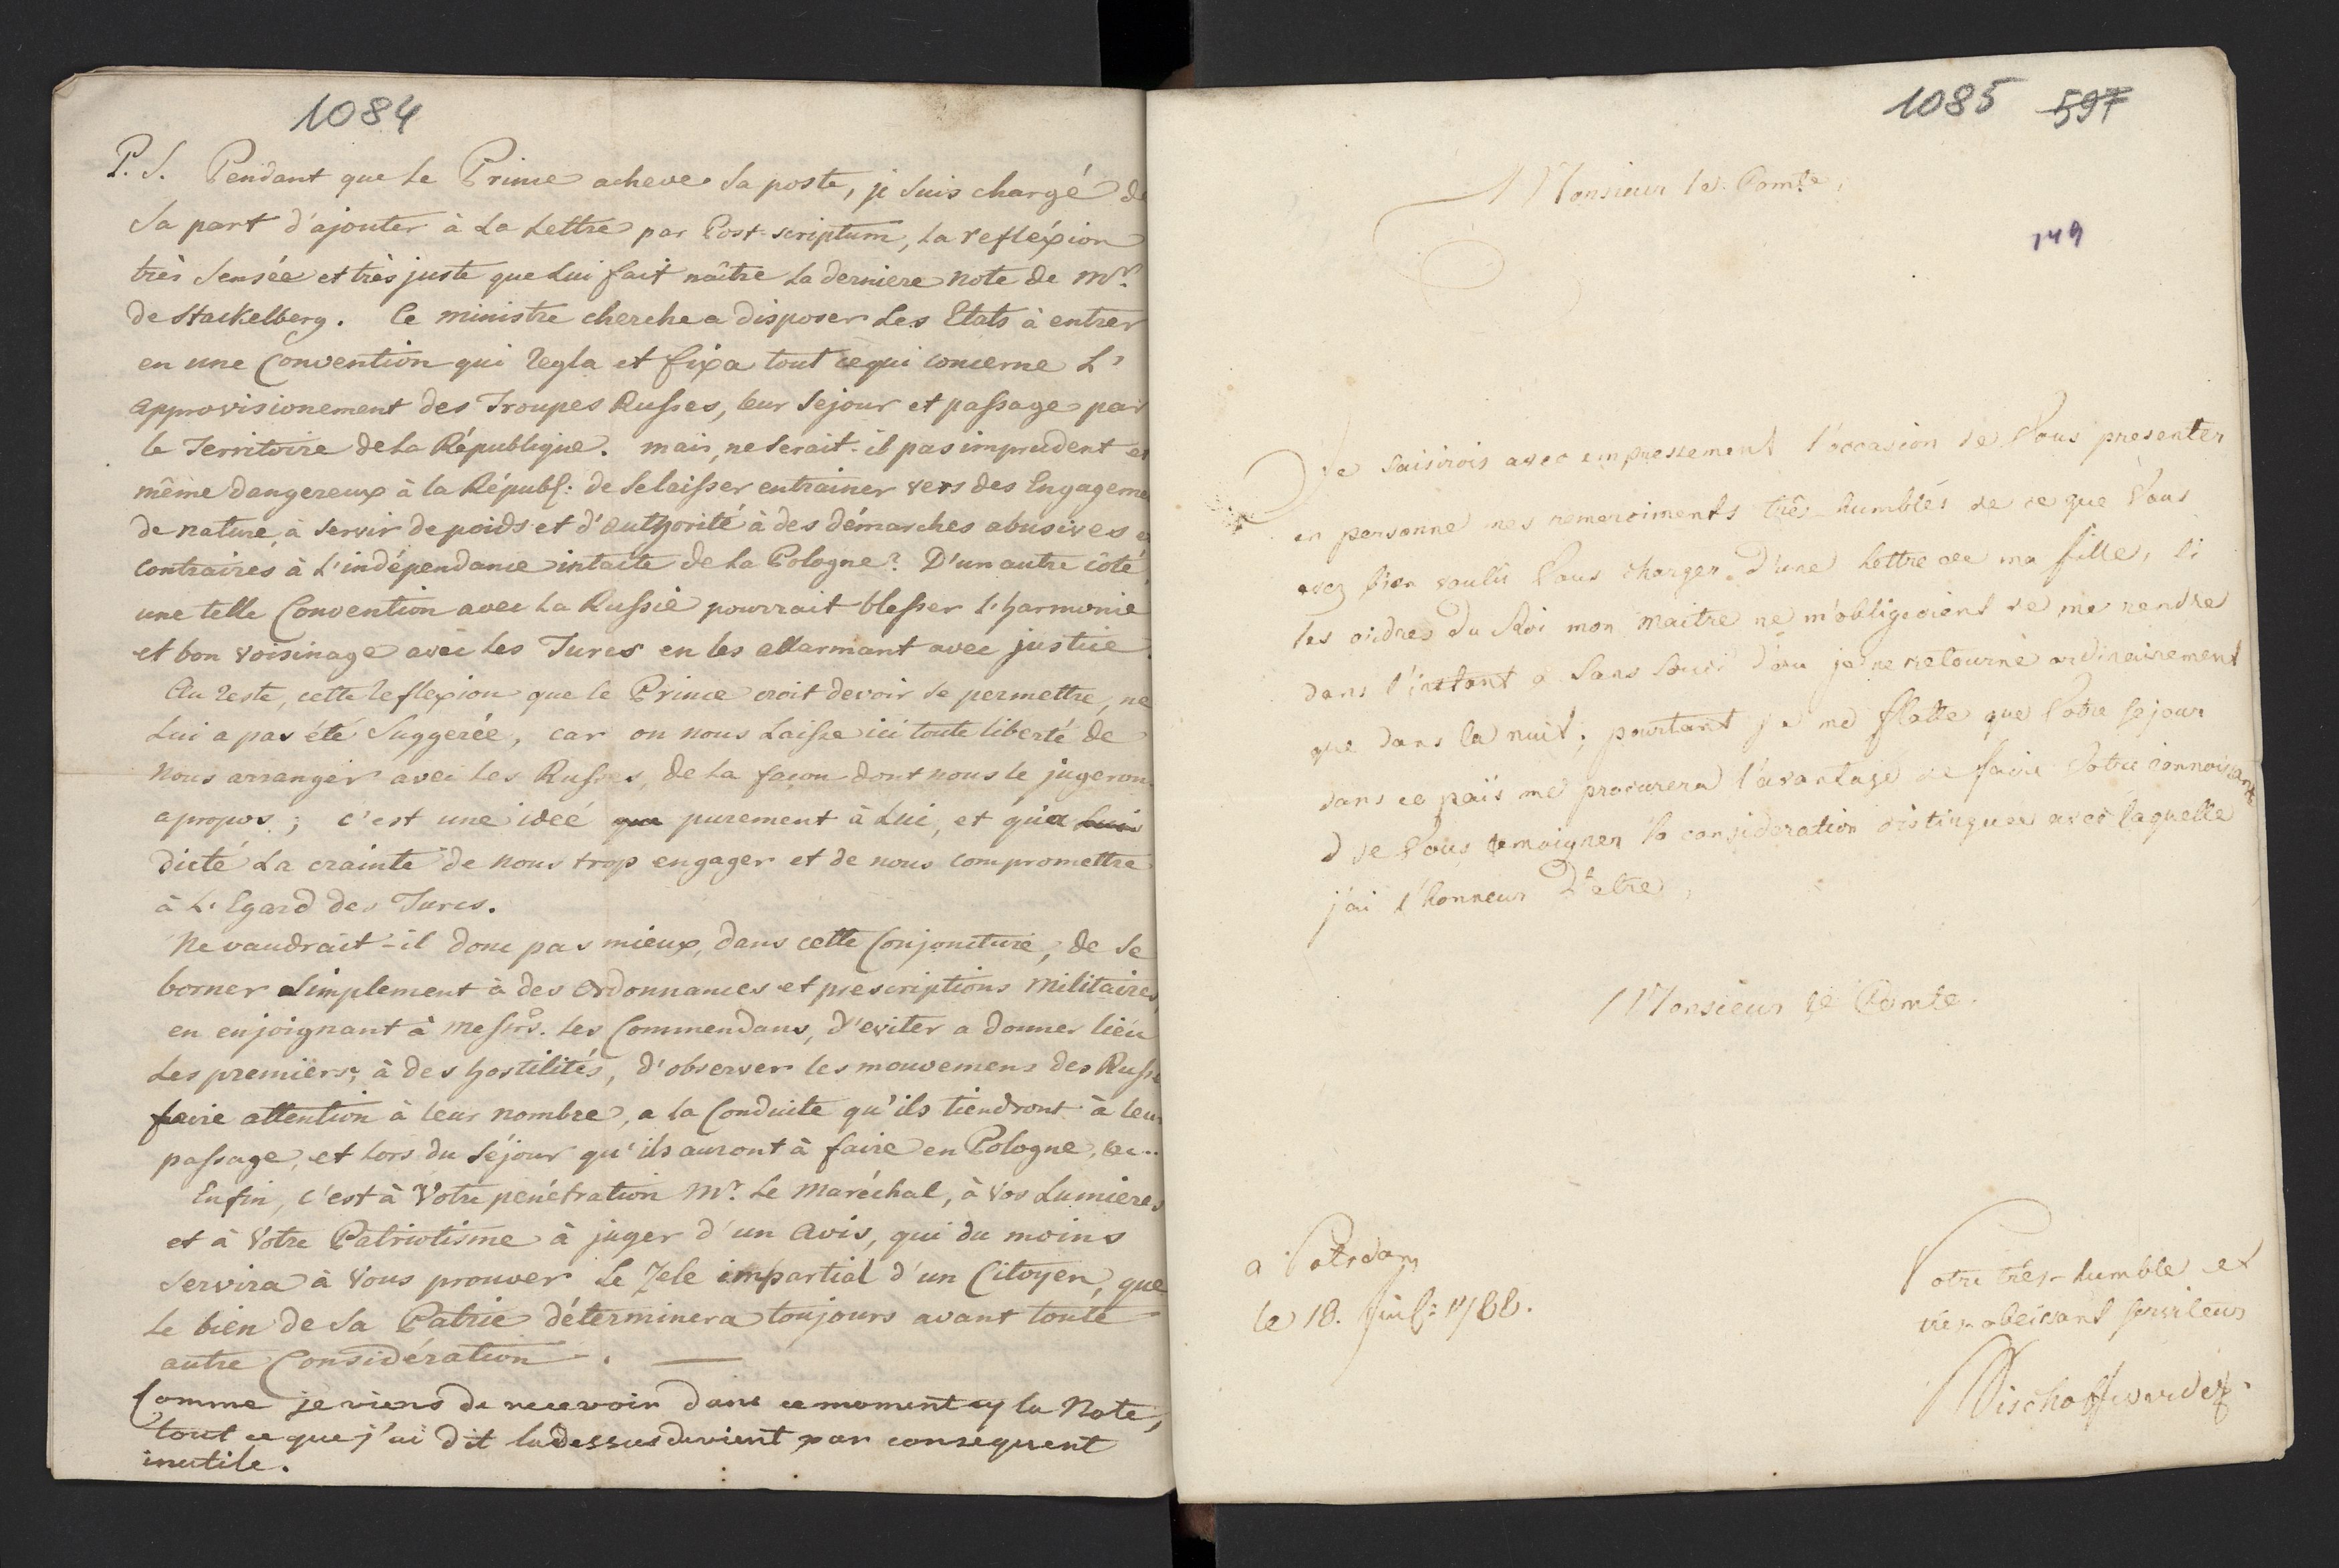 1084
P. S. Pendant que le Prince acheve sa poste, je suis chargé de
sa part d'ajouter à la lettre par Post-scriptum, la refléxion
très sensée et très juste que lui fait naître la derniere note de Mr.
de Stackelberg. Ce ministre cherche a disposer les Etats à entrer
en une Convention qui regla et fixa tout ce qui concerne L'
approvisionement des Troupes Russes, leur sejour et passage par
le Territoire de la République. mais, ne serait-il pas imprudent et
même dangereux à la Républ: de se laisser entrainer vers des Engageme
de nature, à servir de poids et d'authorité à des démarches abusives e
contraires à l'indépendance intacte de la Pologne? D'un autre côté,
une telle Convention avec la Russie pourrait blesser l'harmonie
et bon voisinage avec les Turcs en les allarmant avec justice.
Au reste, cette reflexion que le Prince croit devoir se permettre, ne
lui a pas été suggerée, car on nous laisse ici toute liberté de
nous arranger avec les Russes, de la façon dont nous le jugeron
apropos; c'est une ideé que purement à Lui, et qu'a Lui
dicté la crainte de nous trop engager et de nous compromettre
à L'Egard des Turcs.
Ne vaudrait-il donc pas mieux, dans cette Conjoncture, de se
borner simplement à des ordonnances et prescriptions militaires,
en enjoignant à Messrs. les Commendans, d'eviter a donner lieu
les premiers, à des hostilités, d'observer les mouvemens des Russe
faire attention à leur nombre, a la Conduite qu'ils tiendront à leur
passage, et lors du séjour qu'ils auront à faire en Pologne, &c..
Enfin, c'est à Votre penétration Mr. le Maréchal, à vos Lumieres
et à Votre Patriotisme à juger d'un avis, qui du moins
servira à Vous prouver le Zele impartial d'un Citoyen, que
le bien de sa Patrie déterminera toujours avant toute
autre Considération.
Comme je viens de recevoir dans ce moment cy la Note,
tout ce que j'ai dit ladessus devient par consequent
inutile.
1085 597
Monsieur le Comte,
149
Je saisirois avec empressement l'occasion de Vous presenter
en personne mes remerciments très-humbles de ce que Vous
avez bien voulu Vous charger d'une lettre de ma fille, si
les ordres du Roi mon maitre ne m'obligeoient de me rendre
dans l'instant a Sans Souci d'ou je ne retourne ordinairement
que dans la nuit; pourtant je me flatte que Votre sejour
dans ce païs me procurera l'avantage de faire Votre connoissance
d de Vous temoigner la consideration distinguée avec laquelle
j'ai l'honneur d'etre,
Monsieur le Comte.
a Potsdam
le 18. Juil: 1788.
Votre très-humble et
très obeissant serviteur
Bischoffwerder.